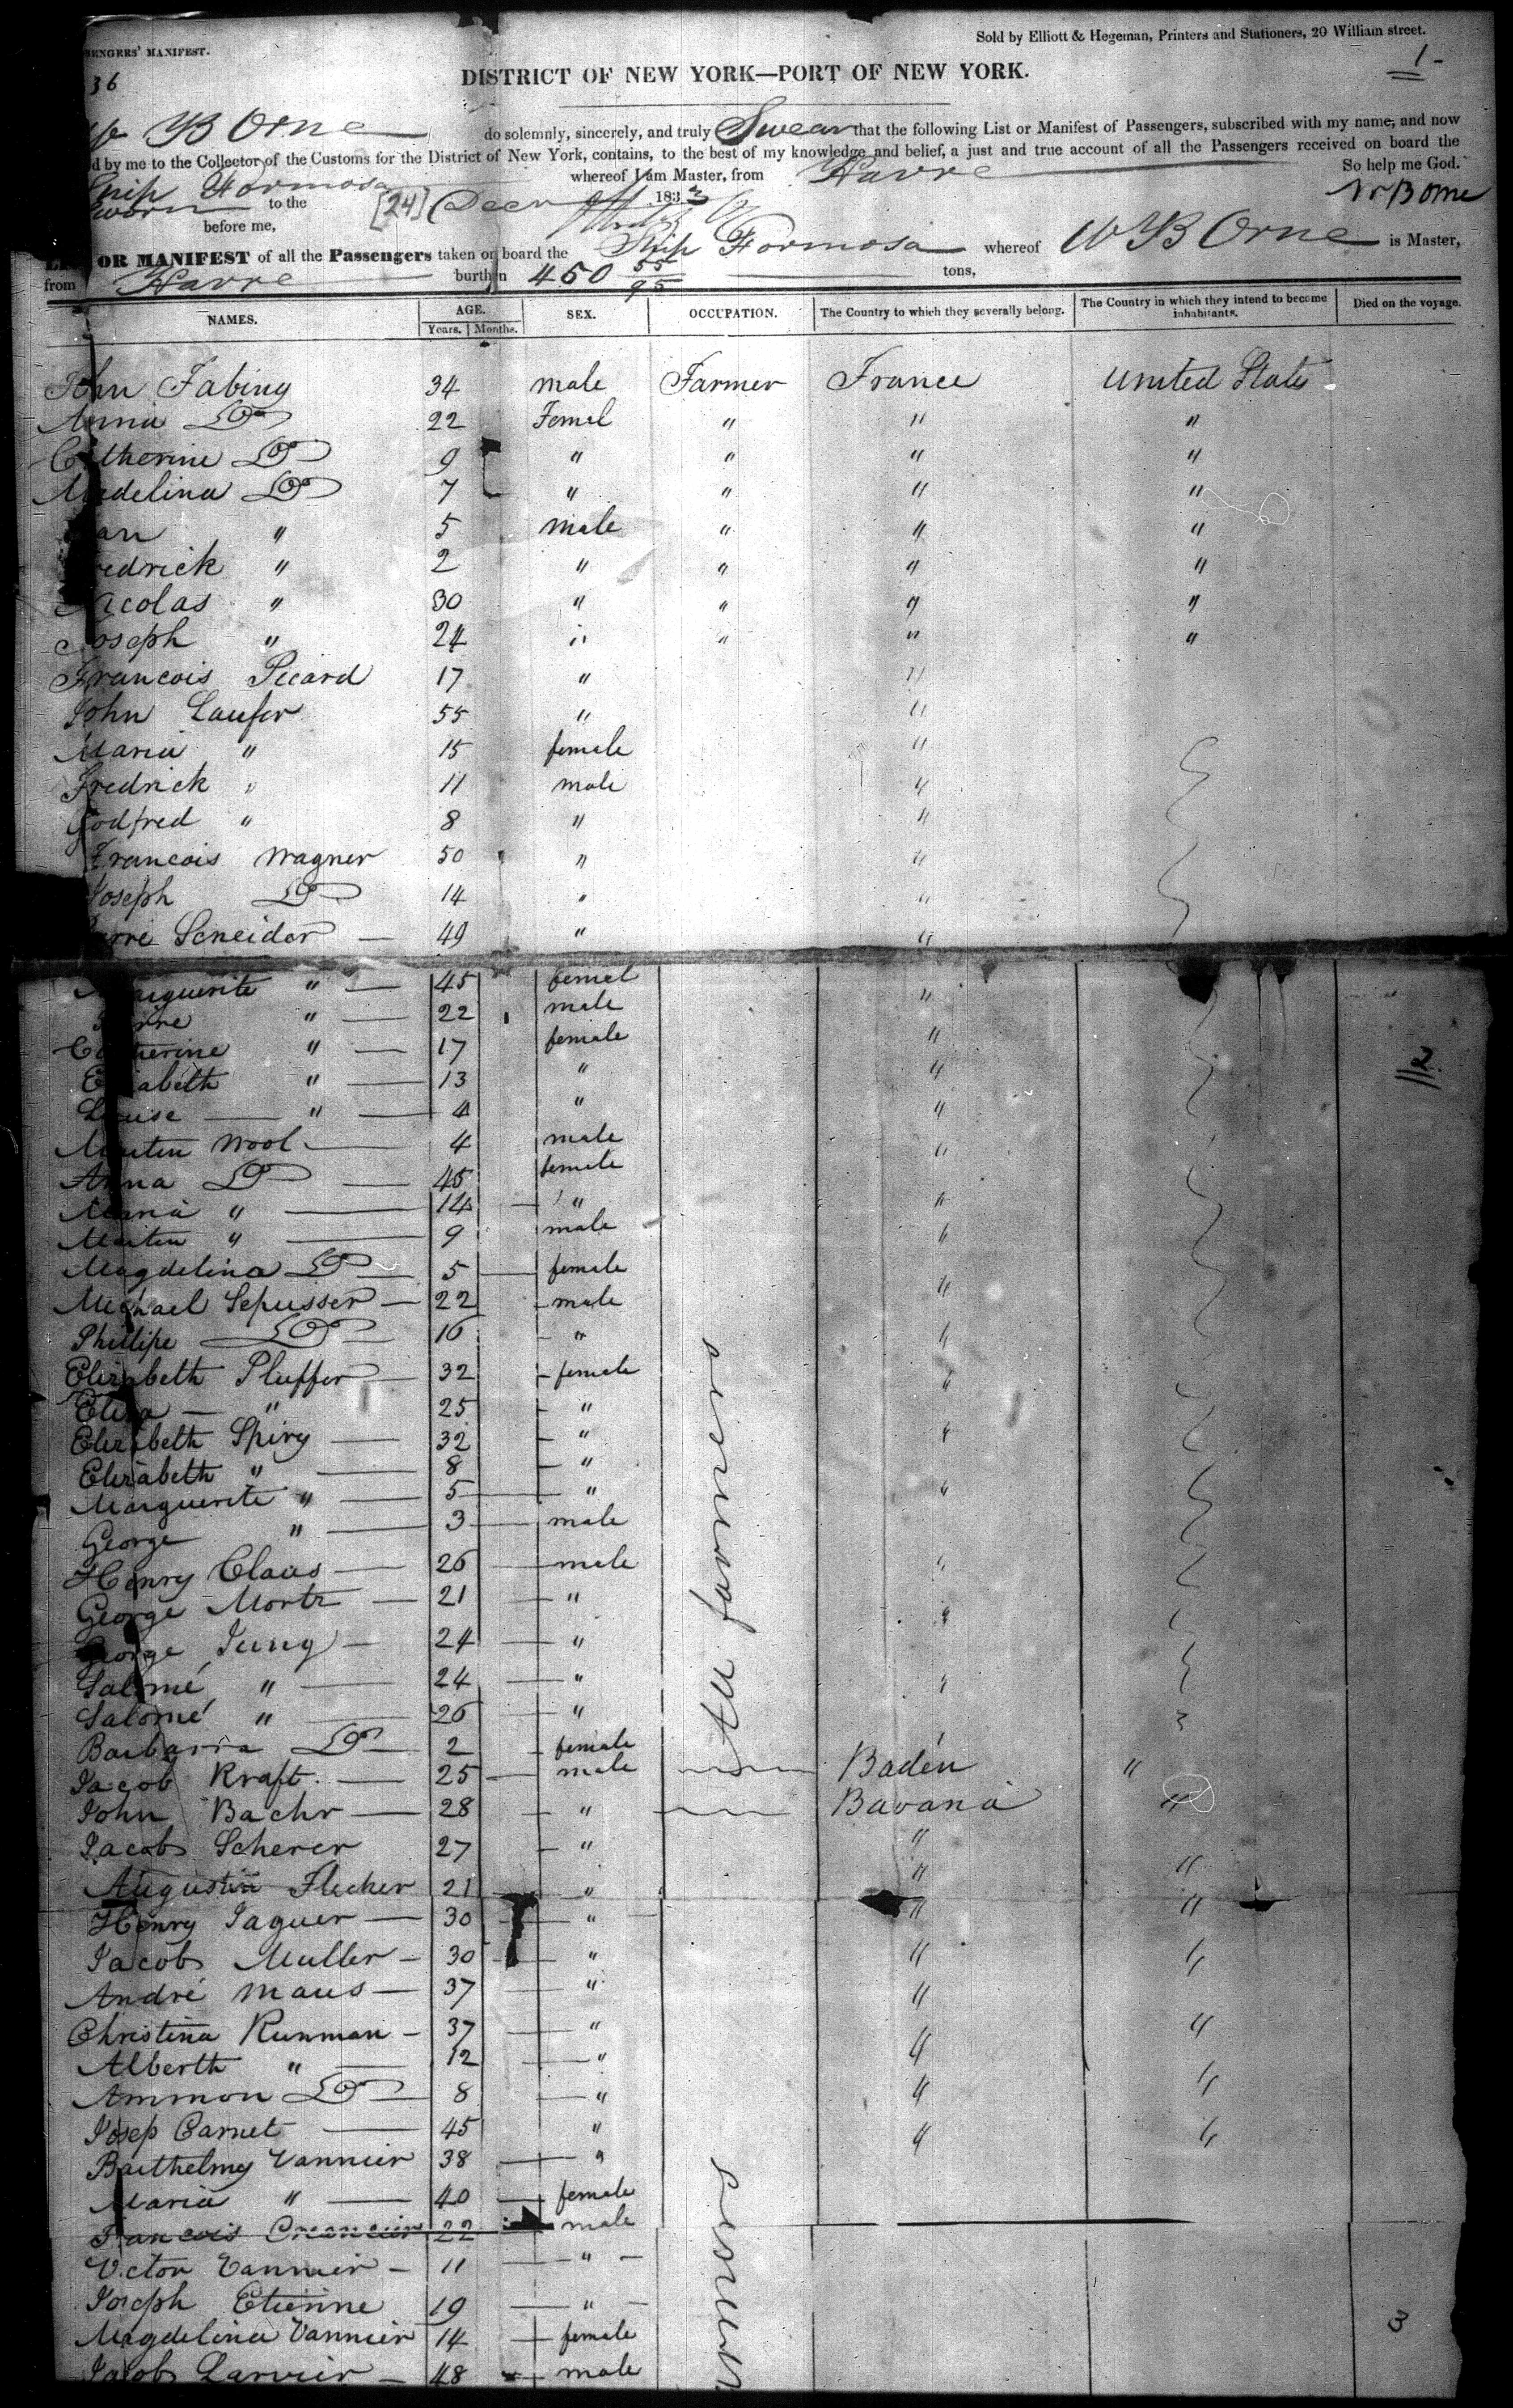 SENGERS' MANIFEST.
Sold by Elliott & Hegeman, Printers and Stationers, 20 William street.
36
1-
DISTRICT OF NEW YORK—PORT OF NEW YORK.
B Orne do solemnly, sincerely, and truly Swear that the following List or Manifest of Passengers, subscribed with my name, and now
d by me to the Collector of the Customs for the District of New York, contains, to the best of my knowledge and belief, a just and true account of all the Passengers received on board the
Ship Formosa whereof I am Master, from Havre So help me God.
Sworn to the [24] Decr 1833 Wm B Orne
before me,
OR MANIFEST of all the Passengers taken on board the Ship Formosa whereof W B Orne is Master,
from Havre burthen 450 55/95 tons,
NAMES. AGE. SEX. OCCUPATION. The Country to which they severally belong. The Country in which they intend to become inhabitants. Died on the voyage.
Years. Months.
John Fabing 34 male Farmer France United State
Anna Do 22 Femal " " "
Catherine Do 9 " " " "
Madelina Do 7 " " " "
" 5 male " " "
redrick " 2 " " " "
Nicolas " 30 " " " "
Joseph " 24 " " " "
Francois Picard 17 " "
John Laufer 55 " "
Maria " 15 female "
Fredrick " 11 male "
Godfred " 8 " "
Francois Wagner 50 " "
Joseph Do 14 " "
Pierre Scneider 49 " "
Marguerite " 45 femal "
Pierre " 22 male "
Catherine " 17 female "
Elisabeth " 13 " "
Louise " 4 "
2
Martin Wool 4 male "
Anna Do 45 female
Maria " 14 " "
Martin " 9 male "
Magdelina Do 5 female "
Michael Sepusser 22 male
Phillipe Do 16 " "
Elizabeth Pluffer 32 female "
Eliza " 25 "
Elizabeth Spiry 32 " "
Elizabeth " 8 "
Marguerite " 5 " "
George " 3 male
Henry Claus 26 male "
George Mortz 21 " "
George Jung 24 "
Salomé " 24 " "
Salomé " 26 "
Barbarra Do 2 female
All farmers
Jacob Kraft. 25 male Baden "
John Bachr 28 " Bavaria "
Jacob Scherer 27 " "
Augustin Flecker 21 " " "
Henry Jaguer 30 " " "
Jacob Muller 30 " " "
André Maus 37 " "
Christina Kunman 37 " " "
Alberth " 12 " "
Ammon Do 8 " " "
Josep Carnet 45 " " "
Barthelmy Vannier 38 "
Maria " 40 female
Francois 22 male
Victor Vannier 11 "
Joseph Etienne 19 "
3
Magdelina Vannier 14 female
Jacob Larvier 48 male